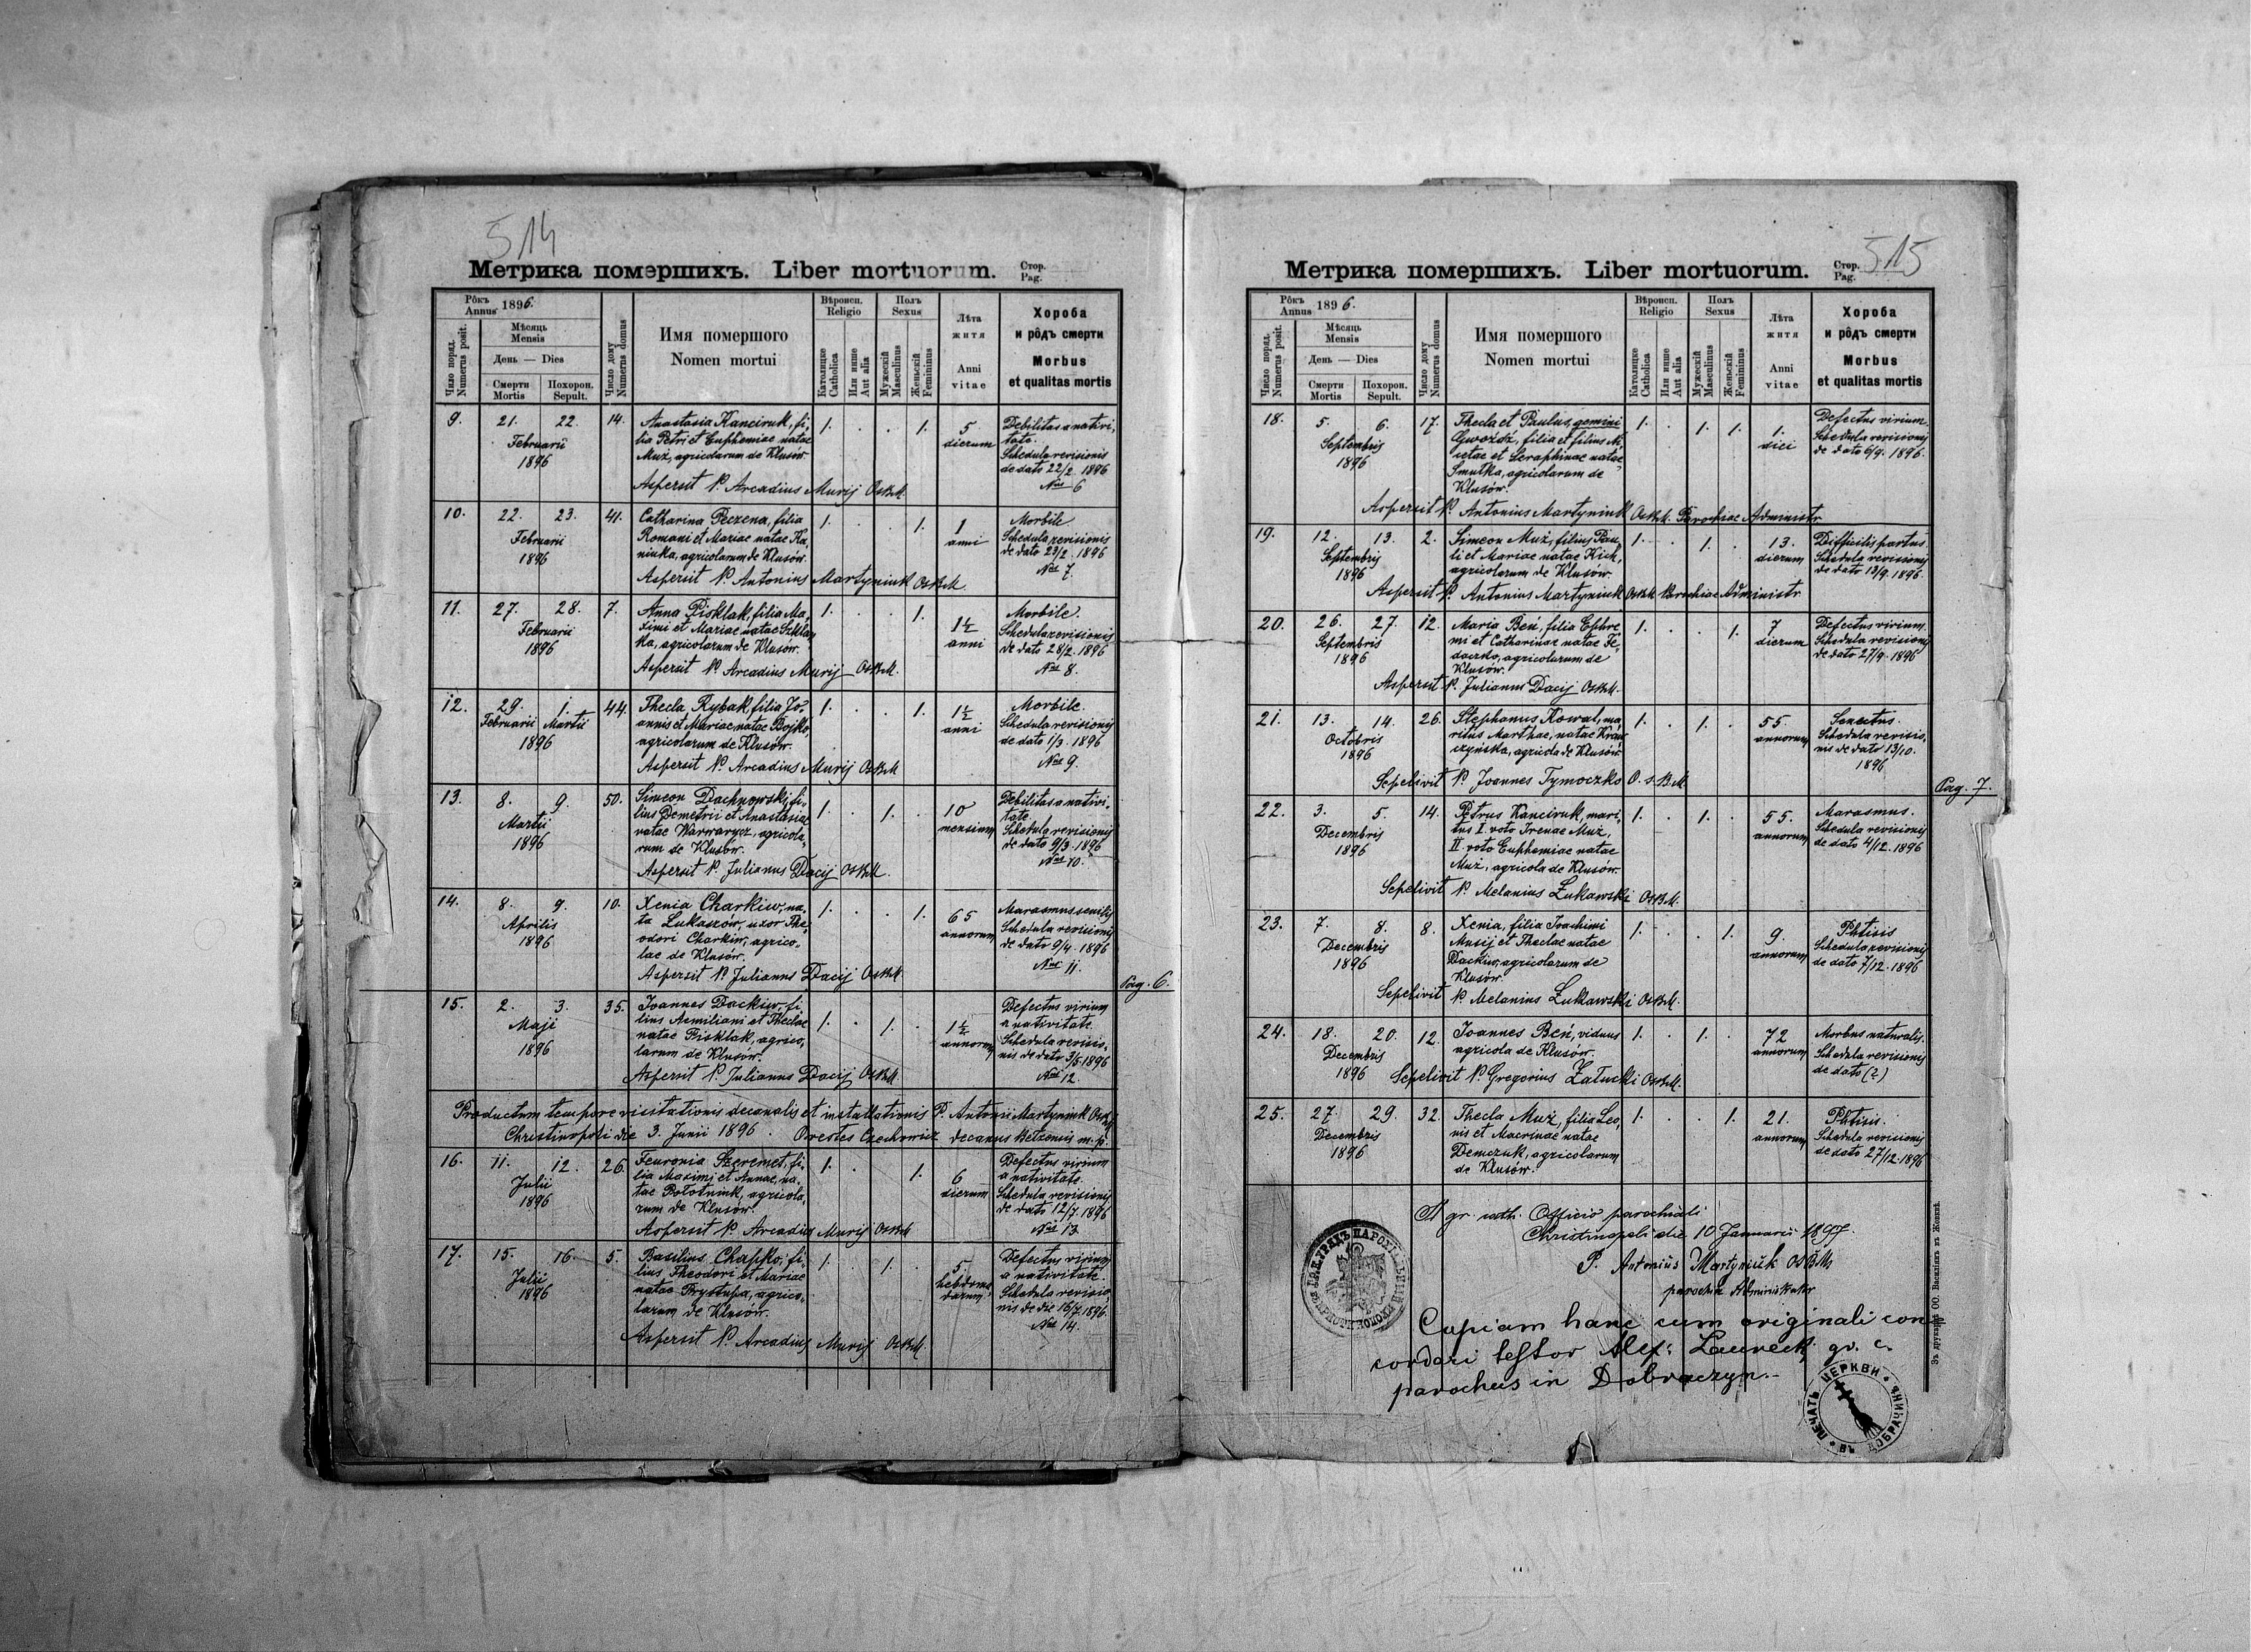 514
Метрика помершихъ. Liber mortuorum.
Стор.
Pag.
Рôкъ
Annus 1896.
Мѣсяць
Mensis
День — Dies
Смерти
Mortis
Похорон.
Sepult.
Чило поряд.
Numerus posit.
Число дому
Numerus domus
Имя помершого
Nomen mortui
Вѣроисп.
Religio
Католицке
Catholica
Или инше
Aut alia
Полъ
Sexus
Мужескій
Masculinus
Женьскій
Femininus
Лѣта
житя
Anni
vitae
Хороба
и рôдъ смерти
Morbus
et qualitas mortis
9. 21. 22. 14. Anastasia Kanciruk, fi- 1. . . 1. 5 Debilitas a nativi-
Februarii lia Petri et Euphemiae natae dierum tate.
1896 Muż, agricolarum de Klusów. Schedula revisionis
de dato 22/2. 1896
Aspersit P. Arcadius Muryj OSBM. Nus 6
10. 22. 23. 41. Catharina Peczena, filia 1. . . 1. 1 Morbile.
Februarii Romani et Mariae natae Ka- anni Schedula revisionis
1896 niuka, agricolarum de Klusów. de dato 23/2. 1896
Aspersit P. Antonius Martyniuk OSBM. Nus 7.
11. 27. 28. 7. Anna Pisklak, filia Ma- 1. . . 1. 1½ Morbile.
Februarii ximi et Mariae natae Szklar- anni Schedula revisionis
1896 ka, agricolarum de Klusów. de dato 28/2. 1896
Aspersit P. Arcadius Muryj OSBM. Nus 8.
12. 29. 1. 44. Thecla Rybak, filia Jo- 1. . . 1. 1½ Morbile.
Februarii Martii annis et Mariae natae Bojko, anni Schedula revisionis
1896 agricolarum de Klusów. de dato 1/3. 1896
Aspersit P. Arcadius Muryj OSBM Nus 9.
13. 8. 9. 50. Simeon Dachnowski, fi- 1. . 1. . 10 Debilitas a nativi-
Martii lius Demetrii et Anastasiae mensium tate
1896 natae Warwarycz, agricola- Schedula revisionis
rum de Klusów. de dato 9/3. 1896
Aspersit P. Julianus Dacij OSBM. Nus 10.
14. 8. 9. 10. Xenia Charkiw, na- 1. . . 1. 65 Marasmus senilis
Aprilis ta Lukaszów, uxor The- annorum Schedula revisionis
1896 odori Charkiw, agrico- de dato 9/4. 1896
lae de Klusów.
Aspersit P. Julianus Dacij OSBM. Nus 11.
Pag. 6.
15. 2. 3. 35. Joannes Dackiw, fi- 1. . 1. . 1½ Defectus virium
Maji lius Aemiliani et Theclae annorum a nativitate.
1896 natae Pisklak, agrico- Schedula revisio-
larum de Klusów. nis de dato 3/5 1896
Aspersit P. Julianus Dacij OSBM. Nus 12.
Productum tempore visitationis decanalis et installationis P. Antonii Martyniuk OSBM
Christinopoli die 3. Junii 1896. Orestes Czechowicz decanus Belzensis m. p.
16. 11. 12. 26. Feuronia Szeremet, fi- 1. . 1. 6 Defectus virium
Julii lia Maximi et Annae, na- dierum a nativitate.
1896 tae Bołotniuk, agricola- Schedula revisionis
rum de Klusów. de dato 12/7. 1896
Aspersit P. Arcadius Muryj OSBM Nus 13.
17. 15. 16. 5. Basilius Chapko, fi- 1. . 1. . 5 Defectus virium
Julii lius Theodori et Mariae hebdoma- a nativitate.
1896 natae Prystupa, agrico- darum Schedula revisio-
larum de Klusów. nis de die 16/7. 1896.
Aspersit P. Arcadius Muryj OSBM. Nus 14.
515
Метрика помершихъ. Liber mortuorum.
Стор.
Pag.
Рôкъ
Annus 1896.
Мѣсяць
Mensis
День — Dies
Смерти
Mortis
Похорон.
Sepult.
Число поряд.
Numerus posit.
Число дому
Numerus domus
Имя помершого
Nomen mortui
Вѣроисп.
Religio
Католицке
Catholica
Или инше
Aut alia
Полъ
Sexus
Мужескій
Masculinus
Женьскій
Femininus
Лѣта
житя
Anni
vitae
Хороба
и рôдъ смерти
Morbus
et qualitas mortis
18. 5. 6. 17. Thecla et Paulus, gemini 1. . 1. 1. 1. Defectus virium.
Septembris Gwozdź, filia et filius Ni- diei Schedula revisionis
1896 cetae et Seraphinae natae de dato 6/9. 1896.
Smutka, agricolarum de
Klusów.
Aspersit P. Antonius Martyniuk OSBM. Parochiae Administr.
19. 12. 13. 2. Simeon Muż, filius Pau- 1. . 1. . 13. Difficilis partus
Septembris li et Mariae natae Kich, dierum Schedula revisionis
1896 agricolarum de Klusów. de dato 13/9. 1896.
Aspersit P. Antonius Martyniuk OSBM Parochiae Administr.
20. 26. 27. 12. Maria Beń, filia Ephre- 1. . . 1. 7 Defectus virium.
Septembris mi et Catharinae natae Fe- dierum Schedula revisionis
1896 daczko, agricolarum de de dato 27/9. 1896
Klusów.
Aspersit P. Julianus Dacij OSBM.
21. 13. 14. 26. Stephanus Kowal, ma- 1. . 1. . 55. Senectus.
Octobris ritus Marthae, natae Kraw- annorum Schedula revisio-
1896 czyńska, agricola de Klusów. nis de dato 13/10.
1896
Sepelivit P. Joannes Tymoczko O. S. B. M.
Pag. 7.
22. 3. 5. 14. Petrus Kanciruk, mari- 1. . 1. . 55. Marasmus.
Decembris tus I. voto Irenae Muż, annorum Schedula revisionis
1896 II. voto Euphemiae natae de dato 4/12. 1896
Muż, agricola de Klusów.
Sepelivit P. Melanius Łukawski OSBM.
23. 7. 8. 8. Xenia, filia Joachimi 1. . . 1. 9. Phtisis
Decembris Musij et Theclae natae annorum Schedula revisionis
1896 Dackiw, agricolarum de de dato 7/12. 1896
Klusów.
Sepelivit P. Melanius Łukawski OSBM.
24. 18. 20. 12. Joannes Beń, viduus 1. . 1. . 72 Morbus naturalis.
Decembris agricola de Klusów. annorum Schedula revisionis
1896 de dato (?)
Sepelivit P. Gregorius Załucki OSBM.
25. 27. 29. 32. Thecla Muż, filia Leo- 1. . . 1. 21. Phtisis.
Decembris nis et Macrinae natae annorum Schedula revisionis
1896 Demczuk, agricolarum de dato 27/12. 1896
de Klusów.
A gr. cath. Officio parochiali
Christinopoli die 10 Januarii 1897.
P. Antonius Martyniuk OSBM
parochiae Administrator
Copiam hanc cum originali con-
cordari testor Alex: Laurecki gr. c.
parochus in Dobraczyn.-
ПЕЧАТЬ ЦЕРКВИ ВЪ ДОБРАЧИНѢ
Зъ друкарнѣ ОО. Василіянъ въ Жовквѣ.